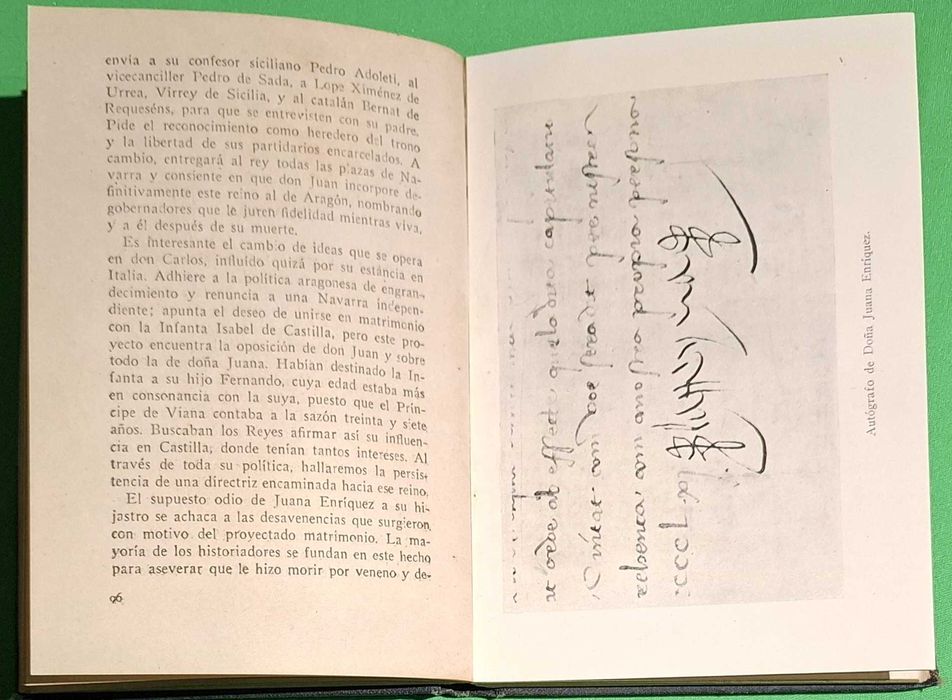 envía a su confesor siciliano Pedro Adoleti, al
vicecanciller Pedro de Sada, a Lope Ximénez de
Urrea, Virrey de Sicilia, y al catalán Bernat de
Requeséns, para que se entrevisten con su padre.
Pide el reconocimiento como heredero del trono
y la libertad de sus partidarios encarcelados. A
cambio, entregará al rey todas las plazas de Na-
varra y consiente en que don Juan incorpore de-
finitivamente este reino al de Aragón, nombrando
gobernadores que le juren fidelidad mientras viva,
y a él después de su muerte.
Es interesante el cambio de ideas que se opera
en don Carlos, influído quizá por su estancia en
Italia. Adhiere a la política aragonesa de engran-
decimiento y renuncia a una Navarra indepen-
diente; apunta el deseo de unirse en matrimonio
con la Infanta Isabel de Castilla, pero este pro-
yecto encuentra la oposición de don Juan y sobre
todo la de doña Juana. Habían destinado la In-
fanta a su hijo Fernando, cuya edad estaba más
en consonancia con la suya, puesto que el Prín-
cipe de Viana contaba a la sazón treinta y siete
años. Buscaban los Reyes afirmar así su influen-
cia en Castilla, donde tenían tantos intereses. Al
través de toda su política, hallaremos la persis-
tencia de una directriz encaminada hacia ese reino.
El supuesto odio de Juana Enríquez a su hi-
jastro se achaca a las desavenencias que surgieron
con motivo del proyectado matrimonio. La ma-
yoría de los historiadores se fundan en este hecho
para aseverar que le hizo morir por veneno y de-
96
Autógrafo de Doña Juana Enríquez.